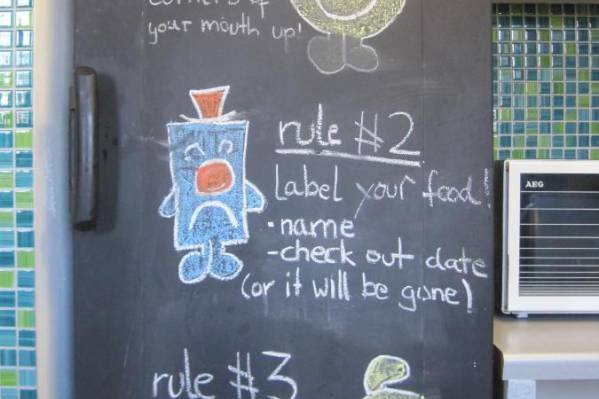 corners of
your mouth up!
rule #2
Label your food!
• name
- check out date
(or it will be gone)
AEG
rule #3